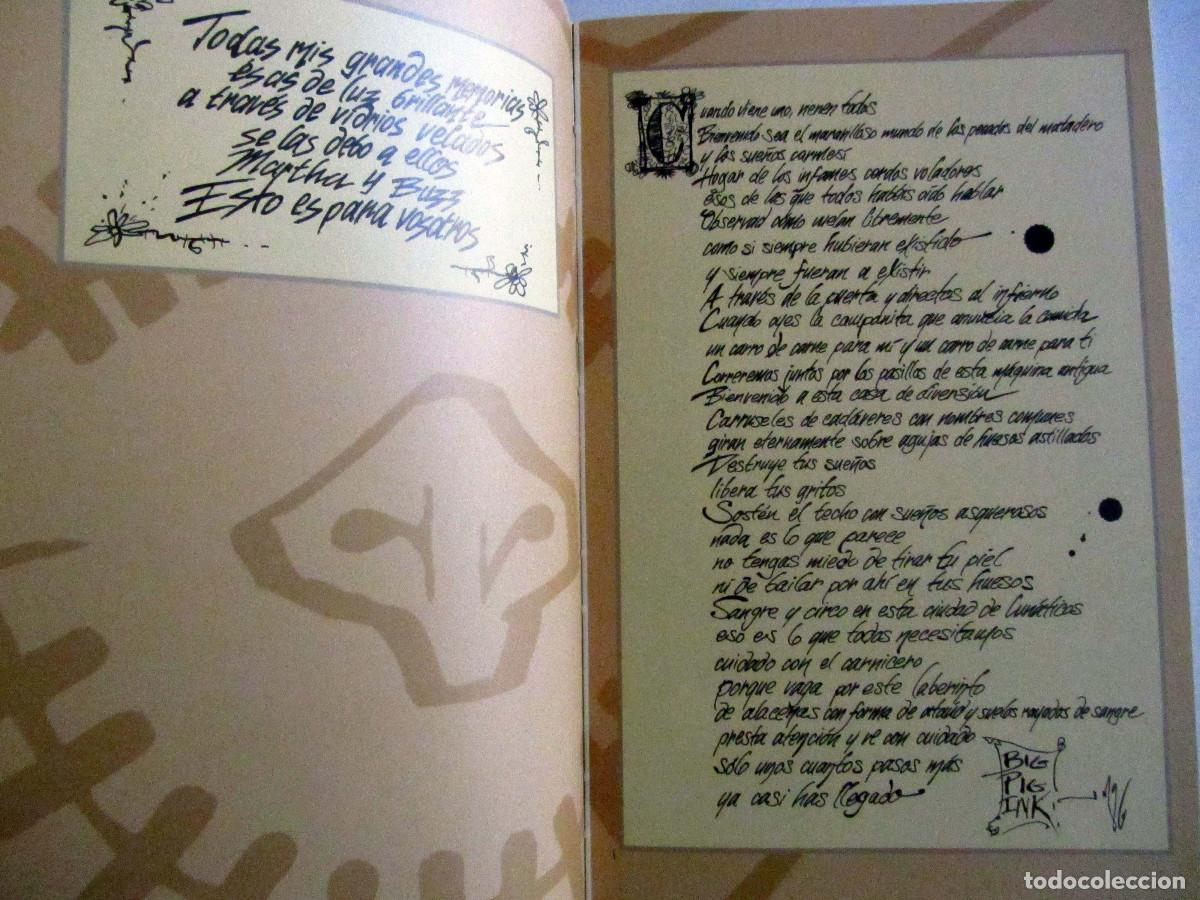 Todas mis grandes memorias
esas de luz brillante
a través de vidrios velados
se las debo a ellos
Martha y Buzz
Esto es para vosotros
Cuando viene uno, vienen todos
Bienvenido sea el maravilloso mundo de los pecados del matadero
y los sueños carmesí
Hogar de los infames cerdos voladores
esos de las que todos habéis oído hablar
Observad cómo vuelan libremente
como si siempre hubieran existido
y siempre fueran a existir
A través de la puerta y directos al infierno
Cuando oyes la campanita que anuncia la comida
un carro de carne para mí y un carro de carne para ti
Correremos juntos por los pasillos de esta máquina antigua
Bienvenido a esta casa de diversión
Carruseles de cadáveres con nombres comunes
giran eternamente sobre agujas de huesos astillados
Destruye tus sueños
libera tus gritos
Sostén el techo con sueños asquerosos
nada es lo que parece
no tengas miedo de tirar tu piel
ni de bailar por ahí en tus huesos
Sangre y circo en esta ciudad de lunáticos
eso es lo que todos necesitamos
cuidado con el carnicero
porque vaga por este laberinto
de alacenas con forma de ataúd y suelos rayados de sangre
presta atención y ve con cuidado
sólo unos cuantos pasos más
ya casi has llegado
BIG
PIG
INK
todocoleccion